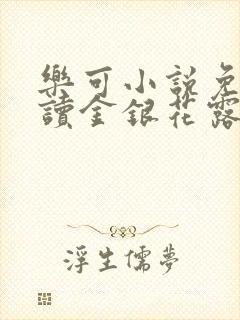 樂可小說免
讀金銀花露
浮生儒夢